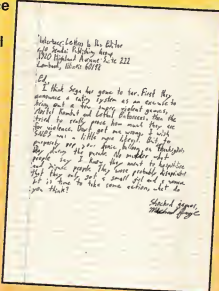 Interface: Letters to the Editor
c/o Sendai Publishing Group
1920 Highland Avenue, Suite 222
Lombard, Illinois 60148
Ed,
I think Sega has gone to far. First they
announce a rating system as an excuse to
bring out a few super violent games,
Mortal Kombat and Lethal Enforcers, then they
tried to really prove how much they are
for violence. Don't get me wrong, I wish
SNES was a little more liberal. But Sega
purposely pop your Sonic balloon on Thanksgiving
Day during the parade. No matter what
people say I know they want to hospitalize
and injure people. They were probably disappointed
that they only got a small girl and a woman.
It is time to take some action, what do
you think?
Shocked gamer,